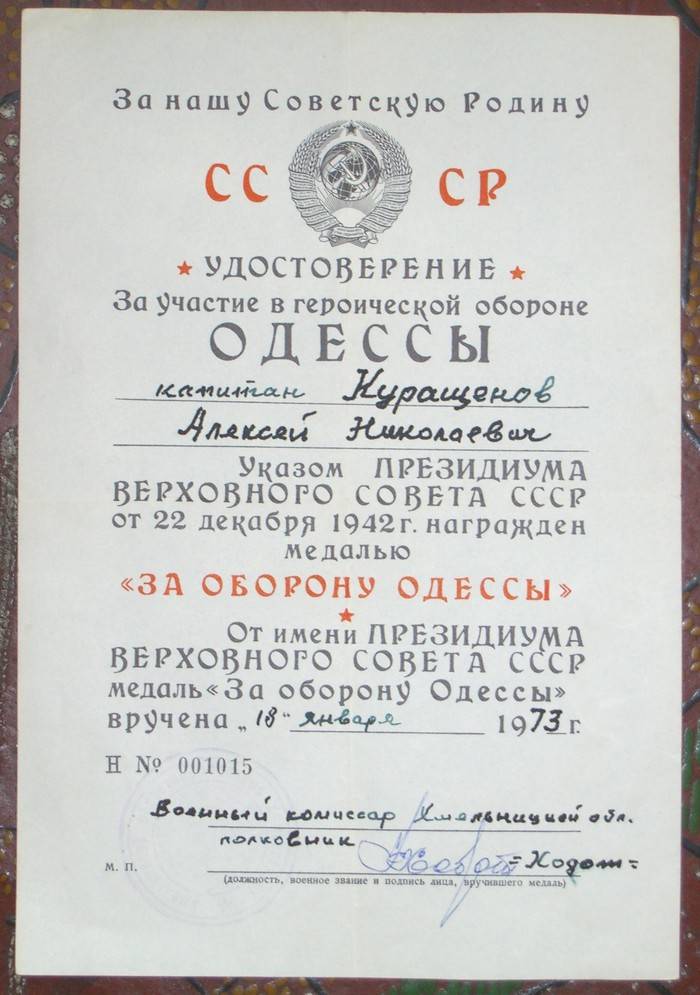 За нашу Советскую Родину
СС СР
УДОСТОВЕРЕНИЕ
За участие в героической обороне
ОДЕССЫ
капитан Куращенов
Алексей Николаевич
Указом ПРЕЗИДИУМА
ВЕРХОВНОГО СОВЕТА СССР
от 22 декабря 1942 г. награжден
медалью
«ЗА ОБОРОНУ ОДЕССЫ»
От имени ПРЕЗИДИУМА
ВЕРХОВНОГО СОВЕТА СССР
медаль «За оборону Одессы»
вручена „18“ января 1973 г.
Н № 001015
Военный комиссар Хмельницкой обл.
полковник =Ходот=
м. п.
(должность, военное звание и подпись лица, вручившего медаль)